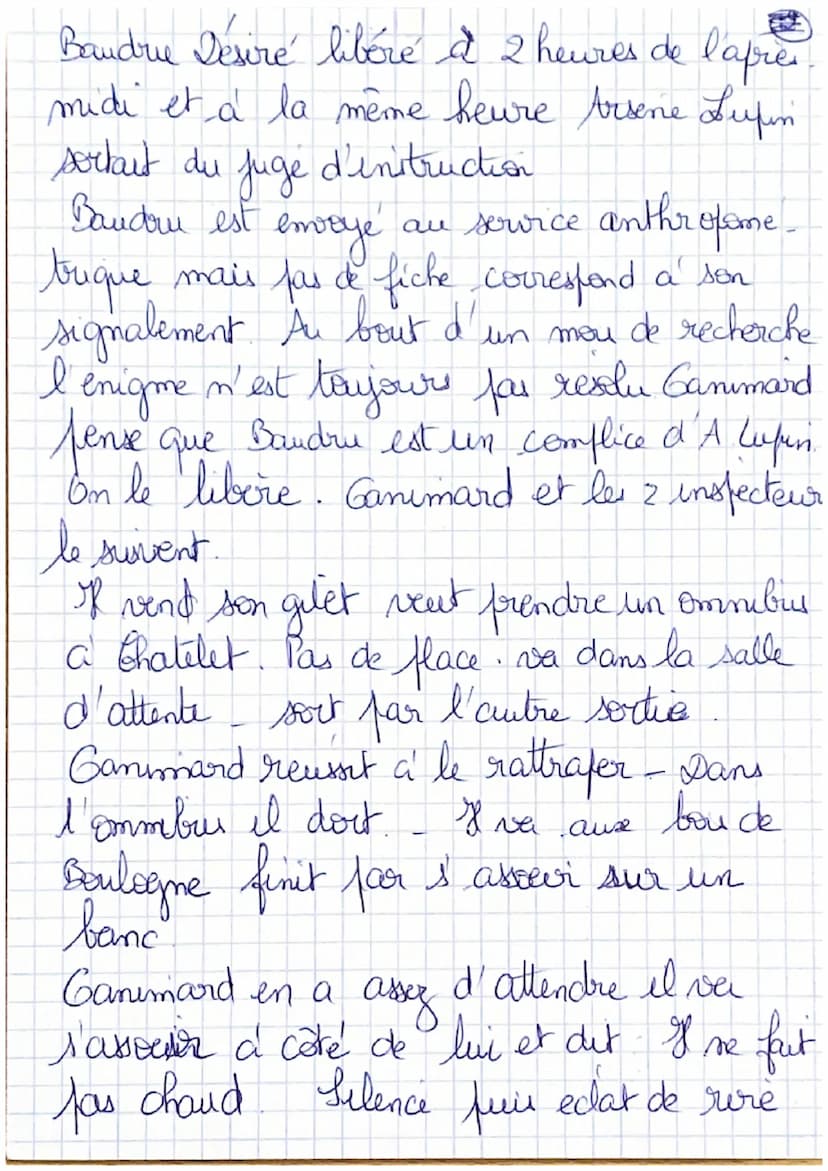 Baudru Désiré libéré à 2 heures de l'après-
midi et à la même heure Arsene Lupin
sortait du juge d'instruction
Baudru est envoyé au service anthropomé-
trique mais pas de fiche correspond a son
signalement. Au bout d'un mois de recherche
l'enigme n'est toujours pas résolu Ganimard
pense que Baudru est un complice d'A Lupin.
On le libère. Ganimard et les 2 inspecteur
le suivent.
Il vend son gilet veut prendre un omnibus
à Chatelet. Pas de place. va dans la salle
d'attente - sort par l'autre sortie.
Ganimard reussit à le rattraper - Dans
l'omnibus il dort. - Il va aux bou de
Boulogne finit par s'asseoir sur un
banc
Ganimard en a assez d'attendre il va
s'asseoir à côté de lui et dit Il ne fait
pas chaud. Silence puis eclat de rire